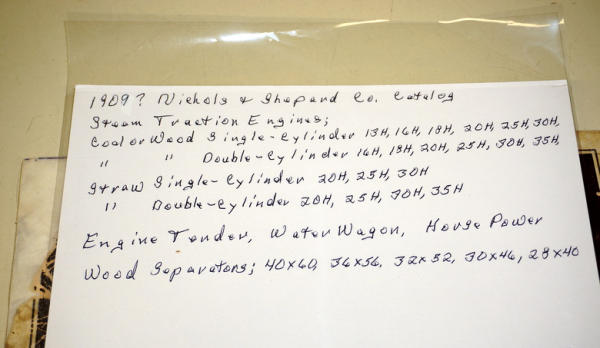 1909? Nichols & Shepard Co. Catalog
Steam Traction Engines;
Coal or Wood Single-Cylinder 13H, 16H, 18H, 20H, 25H, 30H,
" " Double-Cylinder 16H, 18H, 20H, 25H, 30H, 35H,
Straw Single-Cylinder 20H, 25H, 30H
" Double-Cylinder 20H, 25H, 30H, 35H
Engine Tender, Water Wagon, Horse Power
Wood Separators; 40x60, 36x56, 32x52, 30x46, 28x40